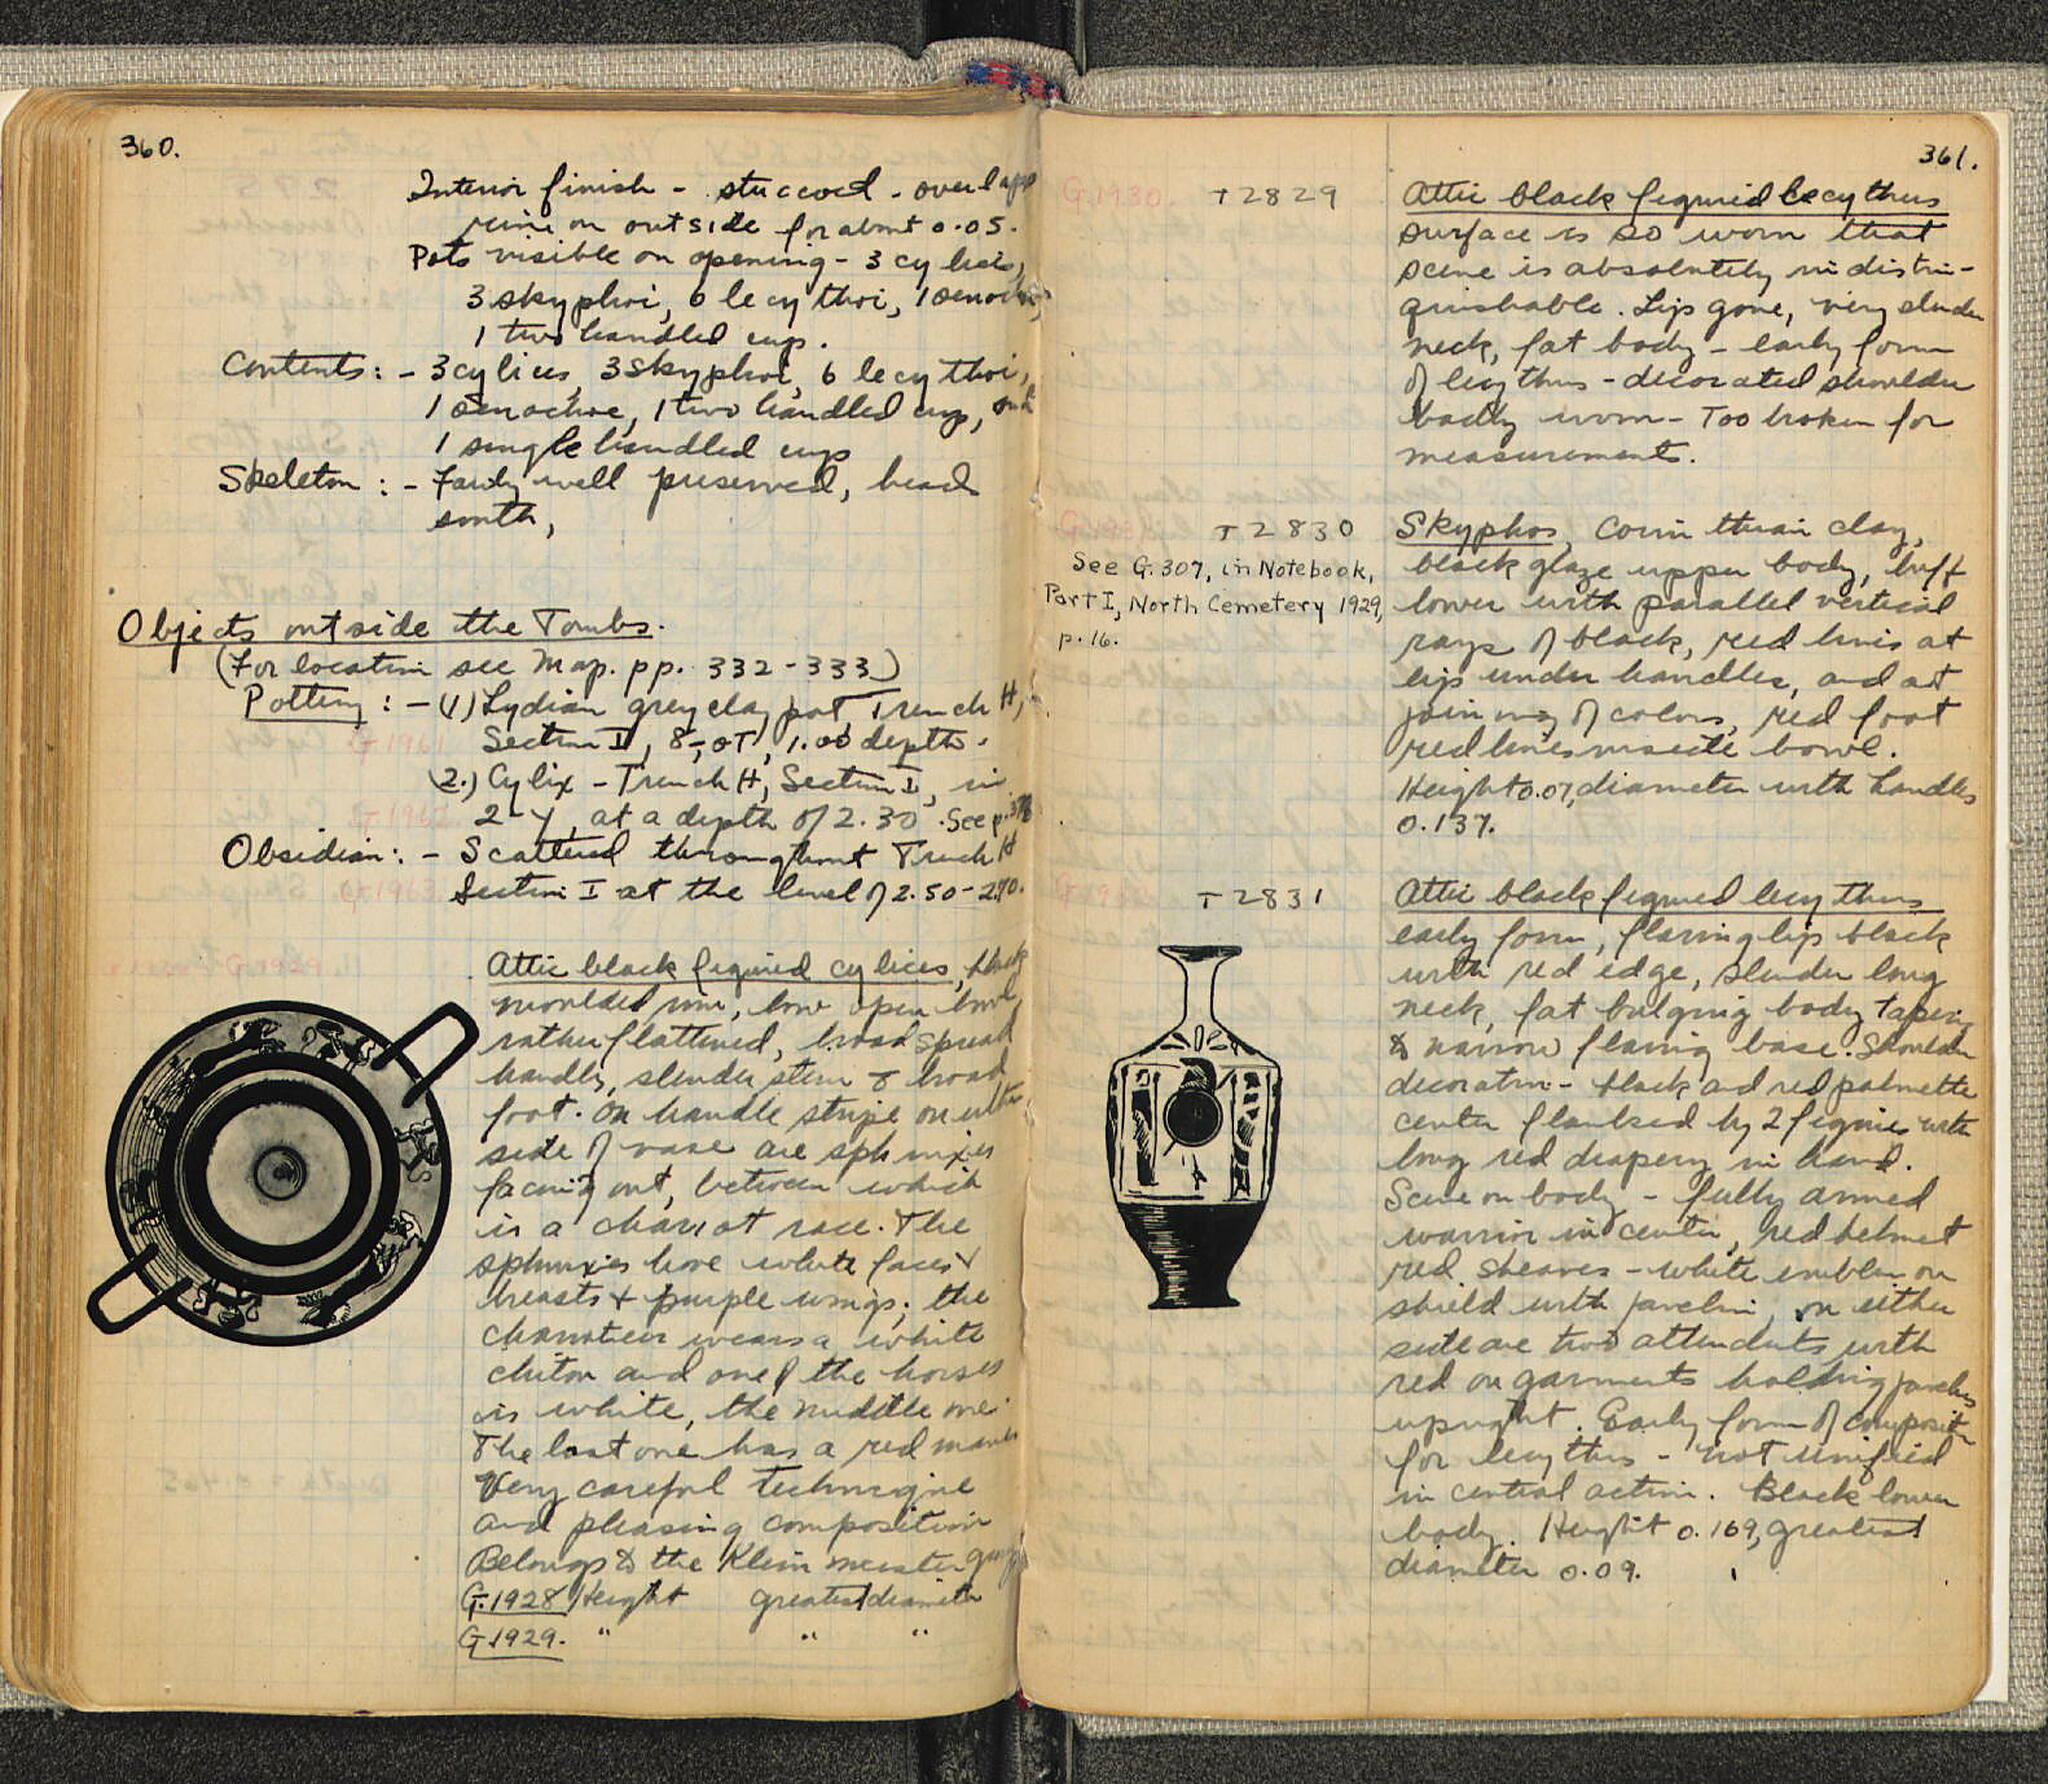 360.
Interior finish - stuccoed - overlaps
rim on outside for about 0.05.
Pots visible on opening - 3 cylices,
3 skyphoi, 6 lecythoi, 1 oenochoe,
1 two handled cup.
Contents: - 3 cylices, 3 skyphoi, 6 lecythoi,
1 oenochoe, 1 two handled cup, and
1 single handled cup
Skeleton: - Fairly well preserved, head
south,
Objects outside the Tombs.
(For location see Map. pp. 332-333)
Pottery: - (1) Lydian grey clay pot Trench H,
Section I, 8-, 1.00 depth.
(2.) Cylix - Trench H, Section I, in
2-Y, at a depth of 2.30. See p.
Obsidian: - Scattered throughout Trench H
Section I at the level of 2.50-2.70.
Attic black figured cylices, black
moulded rim, low open bowl,
rather flattened, broad spread
handles, slender stem & broad
foot. On handle stripe on either
side of vase are sphinxes
facing out, between which
is a chariot race. The
sphinxes have white faces +
breasts + purple wings; the
charioteer wears a white
chiton and one of the horses
is white, the middle one.
The last one has a red mane.
Very careful technique
and pleasing composition
Belongs to the Klein meister group
G.1928 Height greatest diameter
G.1929. " " "
361.
G.1930. T2829
Attic black figured lecythus
surface is so worn that
scene is absolutely indistin-
guishable. Lips gone, very slender
neck, fat body - early form
of lecythus - decorated shoulder
badly worn - Too broken for
measurements.
T2830
See G.307, in Notebook,
Part I, North Cemetery 1929,
p.16.
Skyphos, Corinthian clay,
black glaze upper body, buff
lower with parallel vertical
rays of black, red lines at
lip, under handles, and at
joining of colors, red foot
red lines inside bowl.
Height 0.07, diameter with handles
0.137.
T2831
Attic black figured lecythus
early form, flaring lip black
with red edge, slender long
neck, fat bulging body tapering
to narrow flaring base. Shoulder
decoration - black and red palmette
center flanked by 2 figures with
long red drapery in hand.
Scene on body - fully armed
warrior in center, red helmet
red greaves - white emblem on
shield with javelin, on either
side are two attendants with
red on garments holding javelins
upright. Early form of composition
for lecythus - not unified
in central action. Black lower
body. Height 0.169, greatest
diameter 0.09.